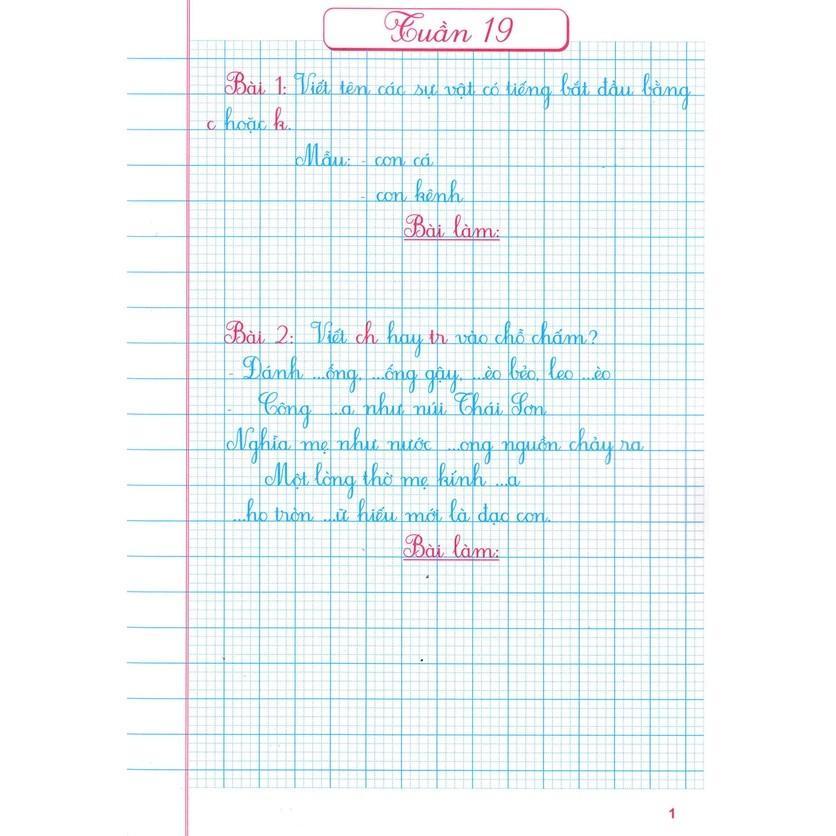 Tuần 19
Bài 1: Viết tên các sự vật có tiếng bắt đầu bằng
c hoặc k.
Mẫu: - con cá
- con kênh
Bài làm:
Bài 2: Viết ch hay tr vào chỗ chấm?
- Đánh ...ống, ...ống gậy, ...èo bẻo, leo ...èo
- Công ...a như núi Thái Sơn
Nghĩa mẹ như nước ...ong nguồn chảy ra
Một lòng thờ mẹ kính ...a
...ho tròn ...ữ hiếu mới là đạo con.
Bài làm:
1